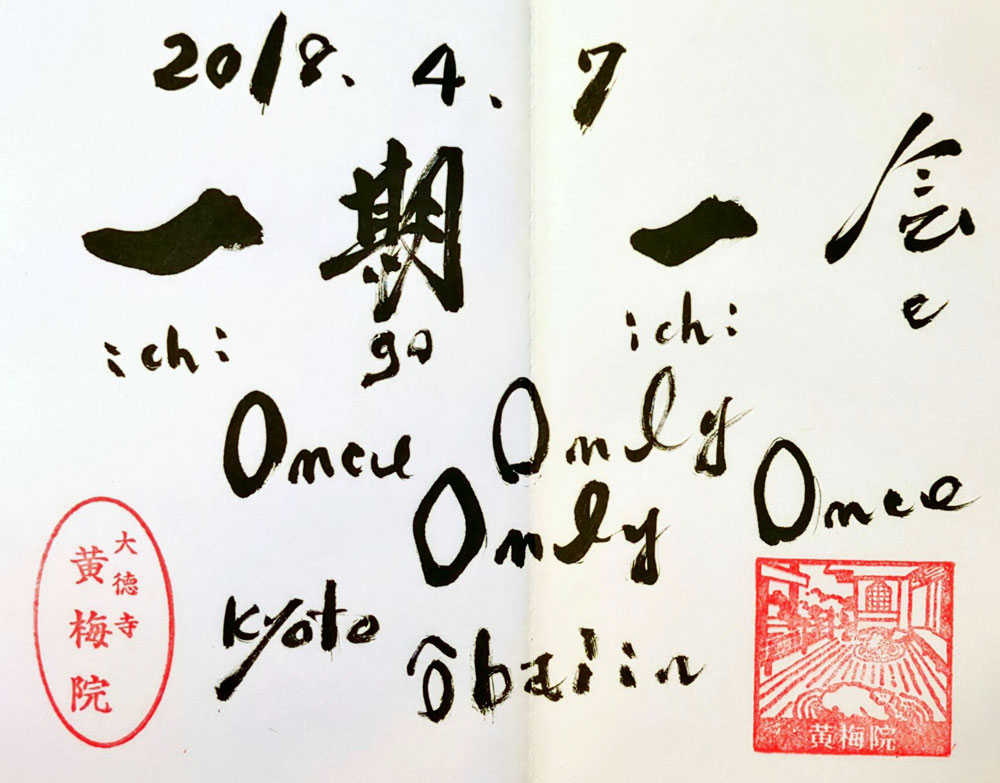 2018. 4. 7
一期一会
ichi go ichi e
Once Only
Only Once
Kyoto Ôbaiin
大徳寺
黄梅院
黄梅院